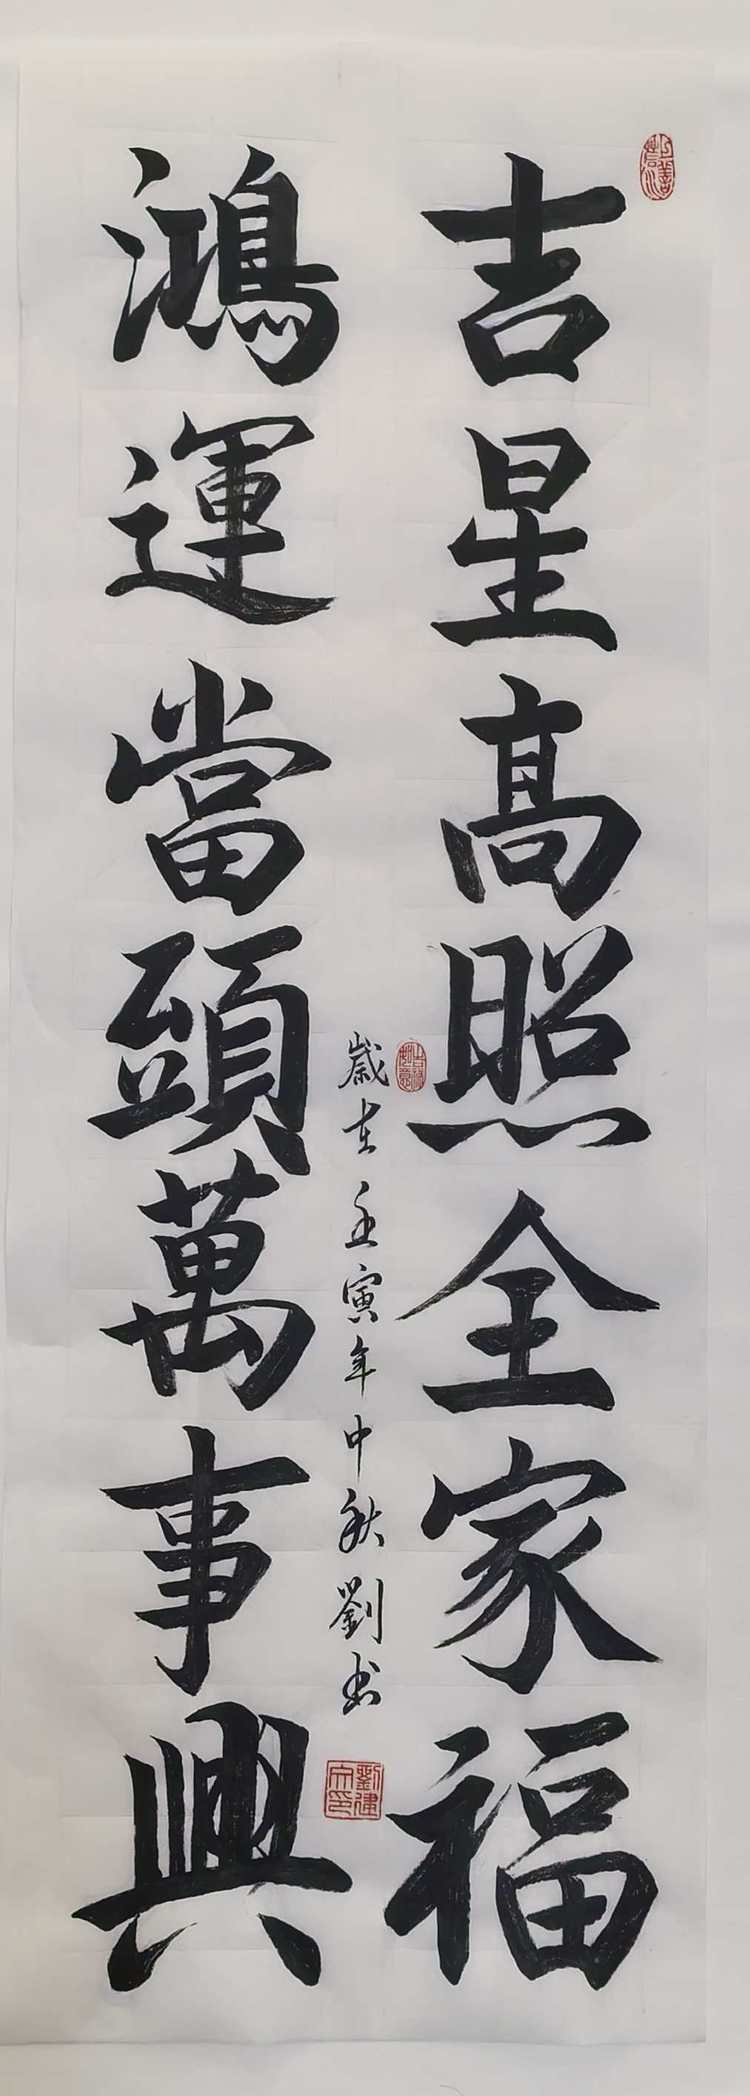 吉星高照全家福
鴻運當頭萬事興
歲在壬寅年中秋劉书